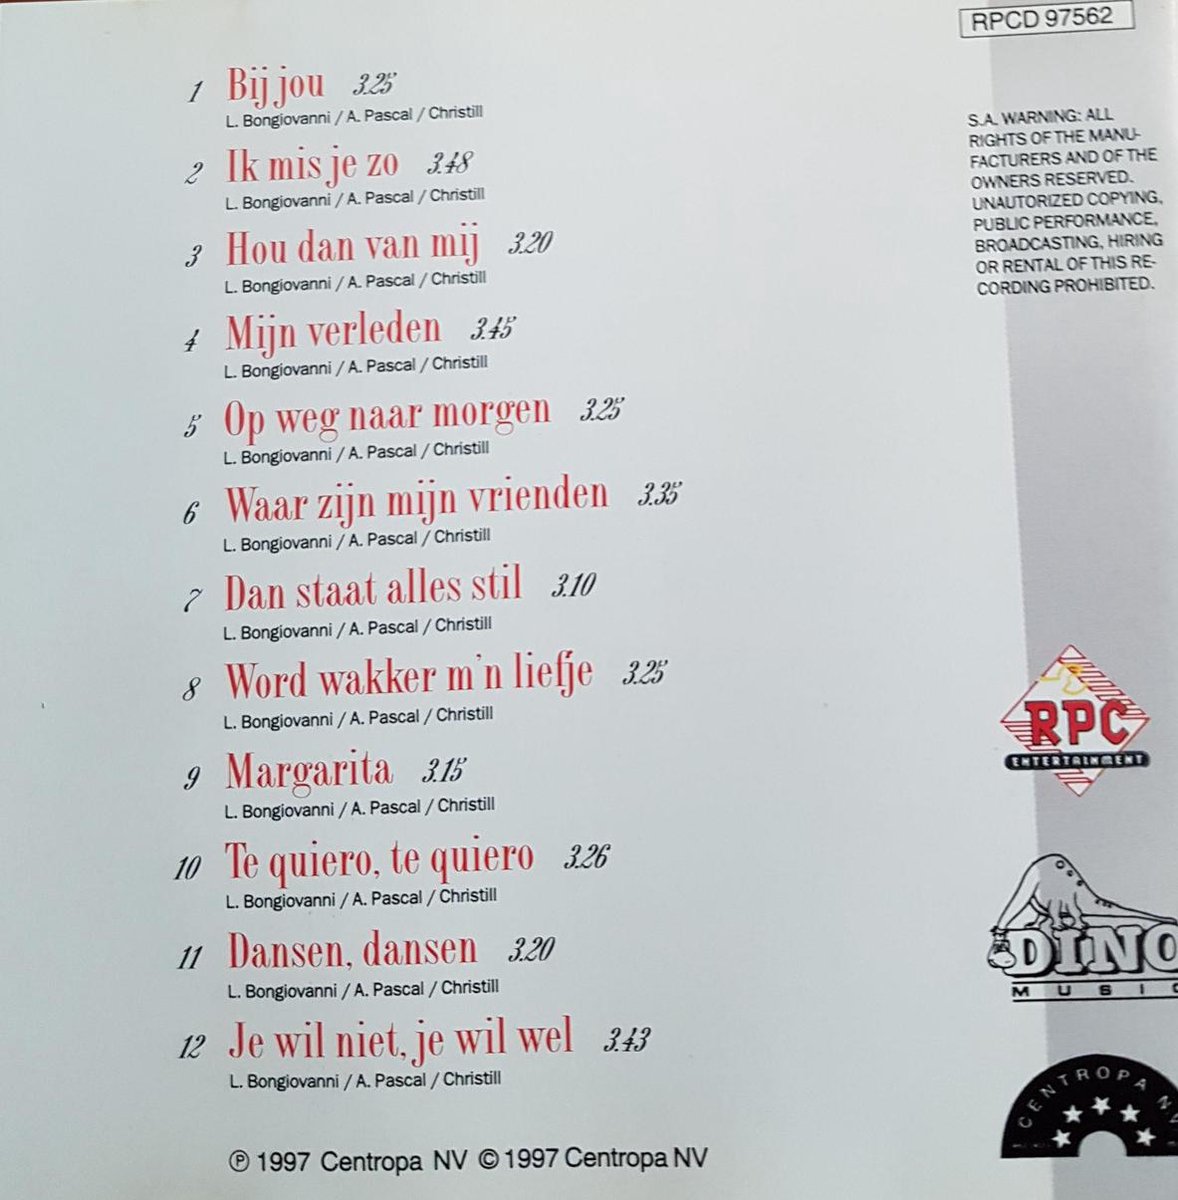 RPCD 97562
1 Bij jou 3.25
L. Bongiovanni / A. Pascal / Christill
2 Ik mis je zo 3.48
L. Bongiovanni / A. Pascal / Christill
3 Hou dan van mij 3.20
L. Bongiovanni / A. Pascal / Christill
4 Mijn verleden 3.45
L. Bongiovanni / A. Pascal / Christill
5 Op weg naar morgen 3.25
L. Bongiovanni / A. Pascal / Christill
6 Waar zijn mijn vrienden 3.35
L. Bongiovanni / A. Pascal / Christill
7 Dan staat alles stil 3.10
L. Bongiovanni / A. Pascal / Christill
8 Word wakker m'n liefje 3.25
L. Bongiovanni / A. Pascal / Christill
9 Margarita 3.15
L. Bongiovanni / A. Pascal / Christill
10 Te quiero, te quiero 3.26
L. Bongiovanni / A. Pascal / Christill
11 Dansen, dansen 3.20
L. Bongiovanni / A. Pascal / Christill
12 Je wil niet, je wil wel 3.43
L. Bongiovanni / A. Pascal / Christill
℗ 1997 Centropa NV © 1997 Centropa NV
S.A. WARNING: ALL
RIGHTS OF THE MANU-
FACTURERS AND OF THE
OWNERS RESERVED.
UNAUTORIZED COPYING,
PUBLIC PERFORMANCE,
BROADCASTING, HIRING
OR RENTAL OF THIS RE-
CORDING PROHIBITED.
RPC
ENTERTAINMENT
DINO
MUSIC
CENTROPA NV